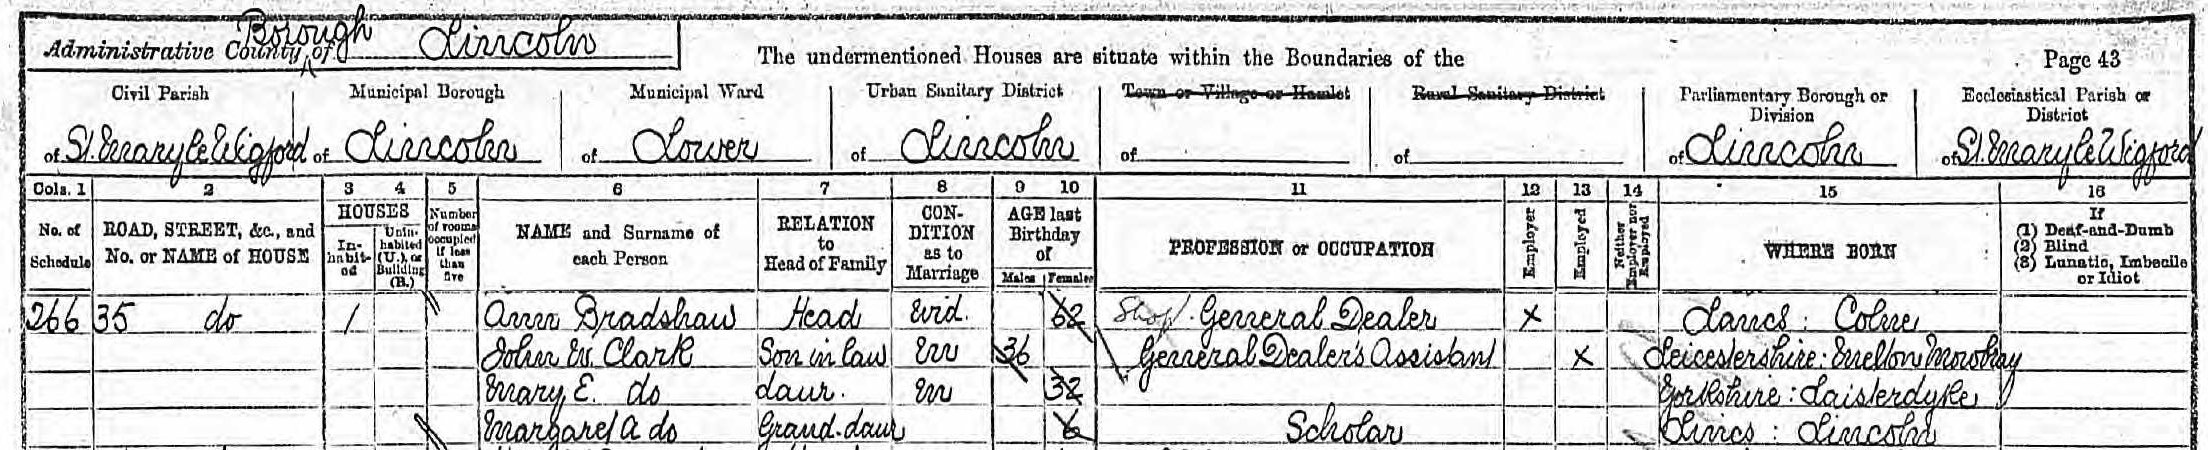 Administrative County of Borough Lincoln
The undermentioned Houses are situate within the Boundaries of the
Page 43
Civil Parish Municipal Borough Municipal Ward Urban Sanitary District Town or Village or Hamlet Rural Sanitary District Parliamentary Borough or Division Ecclesiastical Parish or District
of St. Mary le Wigford of Lincoln of Lower of Lincoln of of of Lincoln of St. Mary le Wigford
Cols. 1 2 3 4 5 6 7 8 9 10 11 12 13 14 15 16
No. of Schedule ROAD, STREET, &c., and No. or NAME of HOUSE HOUSES Inhabited Uninhabited (U.), or Building (B.) Number of rooms occupied if less than five NAME and Surname of each Person RELATION to Head of Family CONDITION as to Marriage AGE last Birthday of Males Females PROFESSION or OCCUPATION Employer Employed Neither Employer nor Employed WHERE BORN If (1) Deaf-and-Dumb (2) Blind (3) Lunatic, Imbecile or Idiot
266 35 do 1 Ann Bradshaw Head Wid. 62 Shop General Dealer X Lancs : Colne
John W. Clark Son in law M 36 General Dealer's Assistant X Leicestershire : Melton Mowbray
Mary E. do daur. M 32 Yorkshire : Laisterdyke
Margaret A do Grand-daur 6 Scholar Lincs : Lincoln